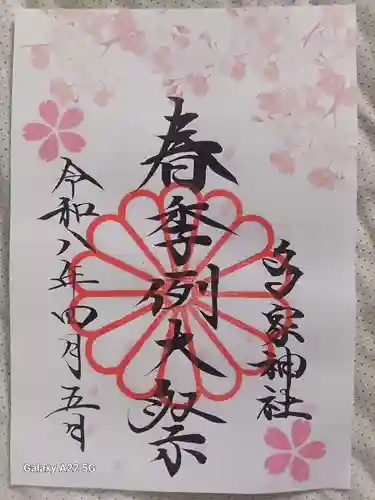 多家神社
春季例大祭
令和八年四月五日
Galaxy A22 5G